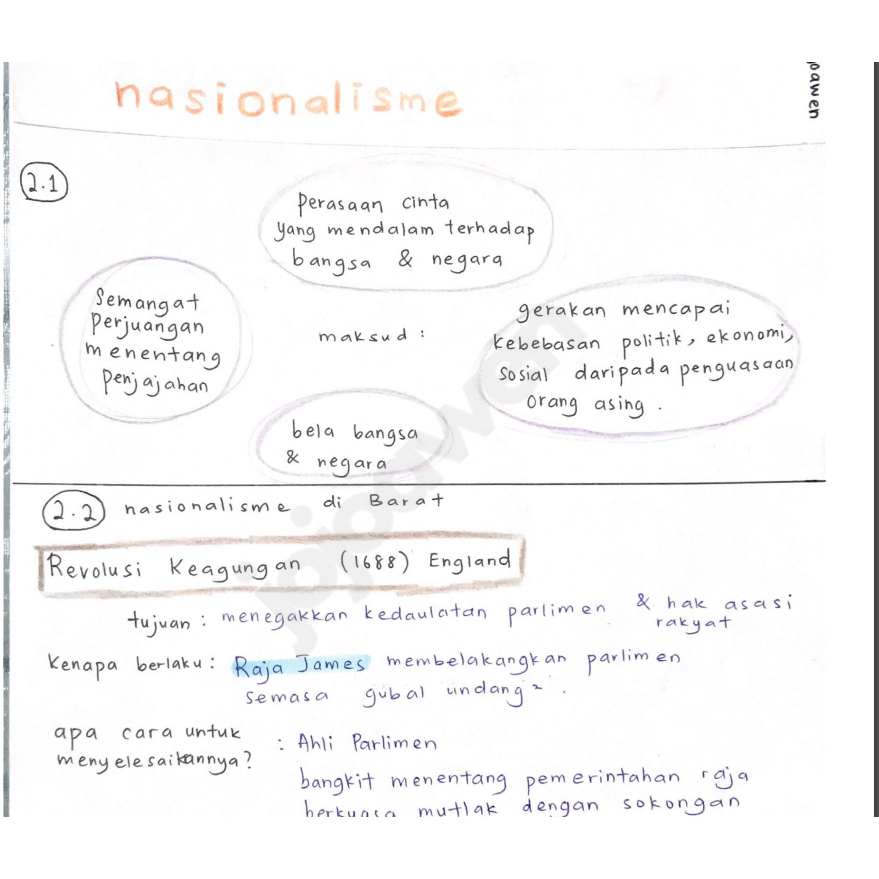 nasionalisme
pawen
2.1
perasaan cinta
yang mendalam terhadap
bangsa & negara
Semangat
perjuangan
menentang
penjajahan
maksud :
gerakan mencapai
kebebasan politik, ekonomi,
sosial daripada penguasaan
orang asing .
bela bangsa
& negara
2.2 nasionalisme di Barat
Revolusi Keagungan (1688) England
tujuan : menegakkan kedaulatan parlimen & hak asasi
rakyat
Kenapa berlaku : Raja James membelakangkan parlimen
semasa gubal undang² .
apa cara untuk
menyelesaikannya? : Ahli Parlimen
bangkit menentang pemerintahan raja
berkuasa mutlak dengan sokongan
jojopawen